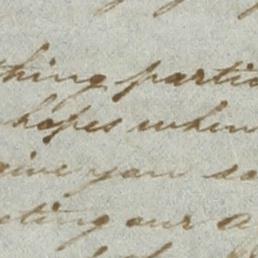 thing partic
hopes when
give you so
eting our a